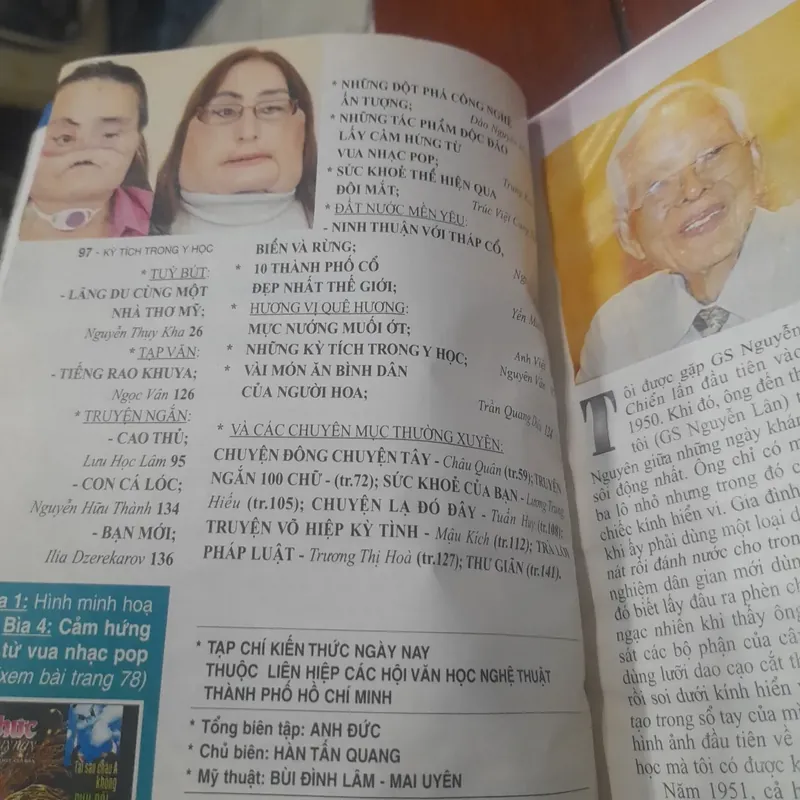 97 - KỲ TÍCH TRONG Y HỌC
* TUỲ BÚT:
- LÃNG DU CÙNG MỘT
NHÀ THƠ MỸ;
Nguyễn Thuỵ Kha 26
* TẠP VĂN:
- TIẾNG RAO KHUYA;
Ngọc Vân 126
* TRUYỆN NGẮN:
- CAO THỦ;
Lưu Học Lâm 95
- CON CÁ LÓC;
Nguyễn Hữu Thành 134
- BẠN MỚI;
Ilia Dzerekarov 136
* NHỮNG ĐỘT PHÁ CÔNG NGHỆ
ẤN TƯỢNG;
Đào Nguyên
* NHỮNG TÁC PHẨM ĐỘC ĐÁO
LẤY CẢM HỨNG TỪ
VUA NHẠC POP;
Trung
* SỨC KHOẺ THỂ HIỆN QUA
ĐÔI MẮT;
Trúc Việt
* ĐẤT NƯỚC MẾN YÊU:
- NINH THUẬN VỚI THÁP CỔ,
BIỂN VÀ RỪNG;
* 10 THÀNH PHỐ CỔ
ĐẸP NHẤT THẾ GIỚI;
Yến
* HƯƠNG VỊ QUÊ HƯƠNG:
MỰC NƯỚNG MUỐI ỚT;
Anh Việt
* NHỮNG KỲ TÍCH TRONG Y HỌC;
Nguyên Vân
* VÀI MÓN ĂN BÌNH DÂN
CỦA NGƯỜI HOA;
Trần Quang
* VÀ CÁC CHUYÊN MỤC THƯỜNG XUYÊN:
CHUYỆN ĐÔNG CHUYỆN TÂY - Châu Quân (tr.59); TRUYỆN
NGẮN 100 CHỮ - (tr.72); SỨC KHOẺ CỦA BẠN - Lương Trọng
Hiếu (tr.105); CHUYỆN LẠ ĐÓ ĐÂY - Tuấn Huy (tr.108);
TRUYỆN VÕ HIỆP KỲ TÌNH - Mậu Kích (tr.112); TRÀ LÀM
PHÁP LUẬT - Trương Thị Hoà (tr.127); THƯ GIÃN (tr.141).
* TẠP CHÍ KIẾN THỨC NGÀY NAY
THUỘC LIÊN HIỆP CÁC HỘI VĂN HỌC NGHỆ THUẬT
THÀNH PHỐ HỒ CHÍ MINH
* Tổng biên tập: ANH ĐỨC
* Chủ biên: HÀN TẤN QUANG
* Mỹ thuật: BÙI ĐÌNH LÂM - MAI UYÊN
1: Hình minh hoạ
Bìa 4: Cảm hứng
từ vua nhạc pop
xem bài trang 78)
Tại sao
không
Tôi được gặp GS Nguyễn
Chiến lần đầu tiên vào
1950. Khi đó, ông đến th
tôi (GS Nguyễn Lân) t
Nguyên giữa những ngày khán
sôi động nhất. Ông chỉ có m
ba lô nhỏ nhưng trong đó c
chiếc kính hiển vi. Gia đình
khi ấy phải dùng một loại d
nát rồi đánh nước cho trong
nghiệm dân gian mới dùng
đó biết lấy đâu ra phèn ch
ngạc nhiên khi thấy ông
sát các bộ phận của câ
dùng lưỡi dao cạo cắt th
rồi soi dưới kính hiển
tạo trong sổ tay của mì
hình ảnh đầu tiên về
học mà tôi có được k
Năm 1951, cả